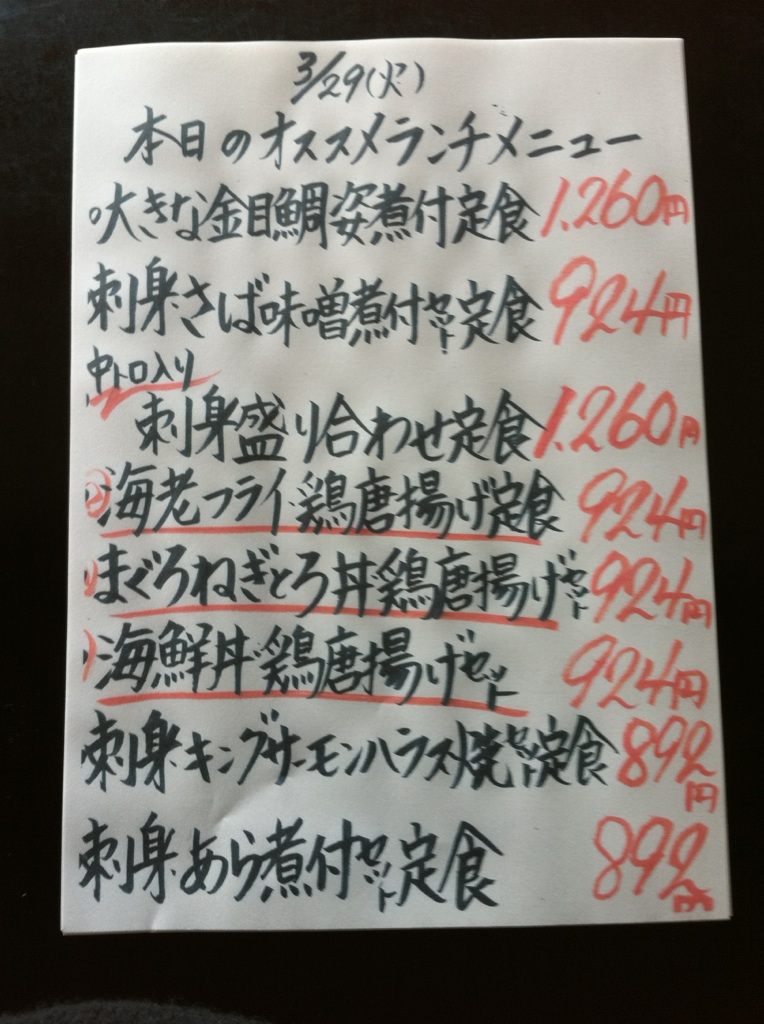 3/29(火)
本日のオススメランチメニュー
大きな金目鯛姿煮付定食 1.260円
刺身さば味噌煮付セット定食 924円
中トロ入り
刺身盛り合わせ定食 1.260円
海老フライ鶏唐揚げ定食 924円
まぐろねぎとろ丼鶏唐揚げセット 924円
海鮮丼鶏唐揚げセット 924円
刺身キングサーモンハラス焼セット定食 892円
刺身あら煮付セット定食 892円